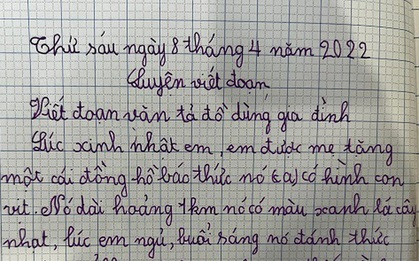 Thứ sáu ngày 8 tháng 4 năm 2022
Luyện viết đoạn
Viết đoạn văn tả đồ dùng gia đình
Lúc xinh nhật em, em được mẹ tăng
một cái đồng hồ báo thức nó (a) có hình con
vit. Nó dài hoảng 1km nó có màu xanh lá cây
nhạt, lúc em ngủ, buổi sáng nó đánh thức